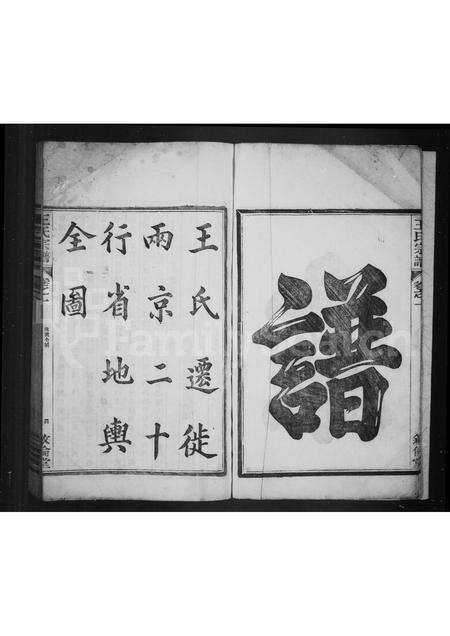 譜
王氏宗譜
卷之一
王氏遷徙
兩京二十
行省地輿
全圖
王氏宗譜
卷之一
敦倫堂
FamilySearch